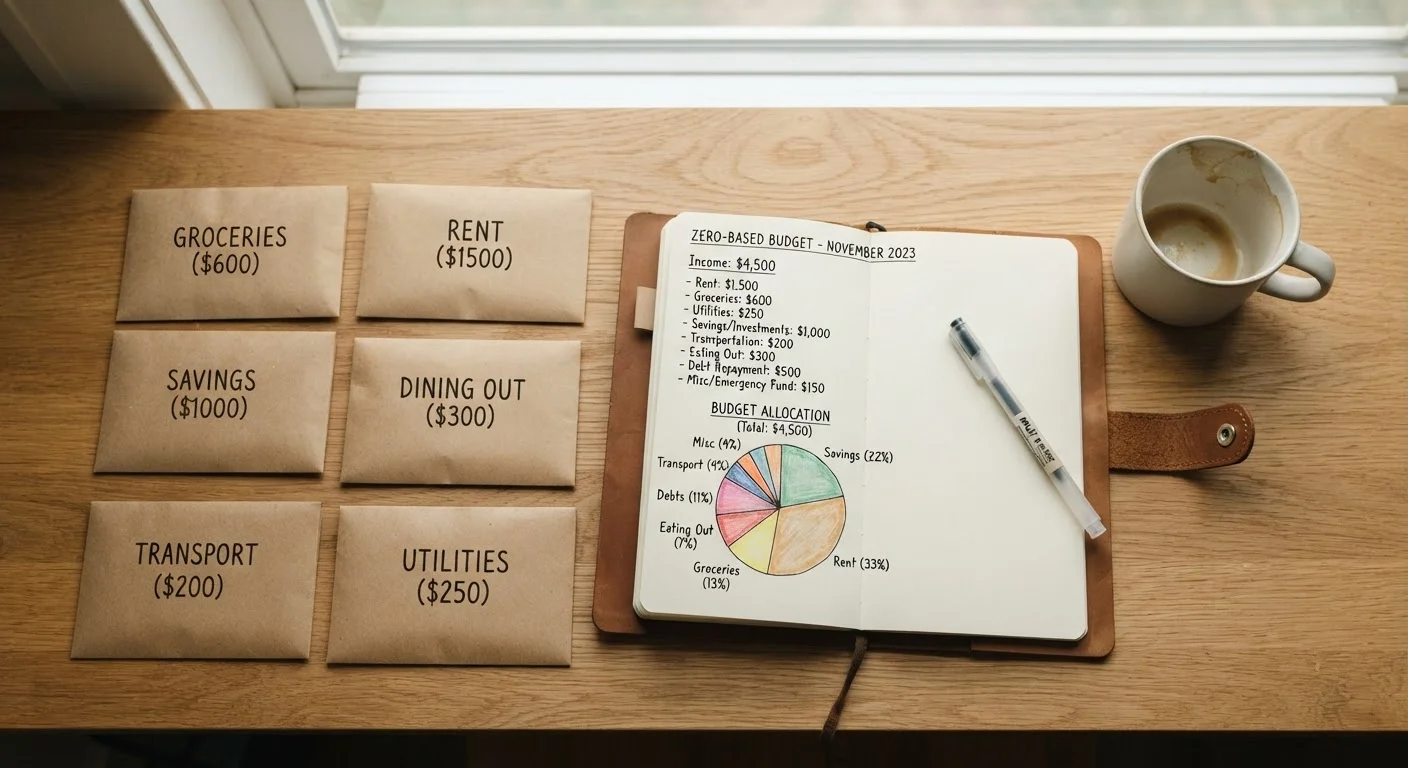 GROCERIES
($600)
RENT
($1500)
SAVINGS
($1000)
DINING OUT
($300)
TRANSPORT
($200)
UTILITIES
($250)
ZERO-BASED BUDGET - NOVEMBER 2023
Income: $4,500
- Rent: $1.500
- Groceries: $600
- Utilities: $250
- Savings/Investments: $1,000
- : $200
- Out: $300
- : $500
- Misc/Emergency Fund: $150
BUDGET ALLOCATION
(Total: $4,500)
Misc (4%)
Savings (22%)
Transport (4%)
Debts (11%)
Eating Out
(7%)
Groceries
(13%)
Rent (33%)